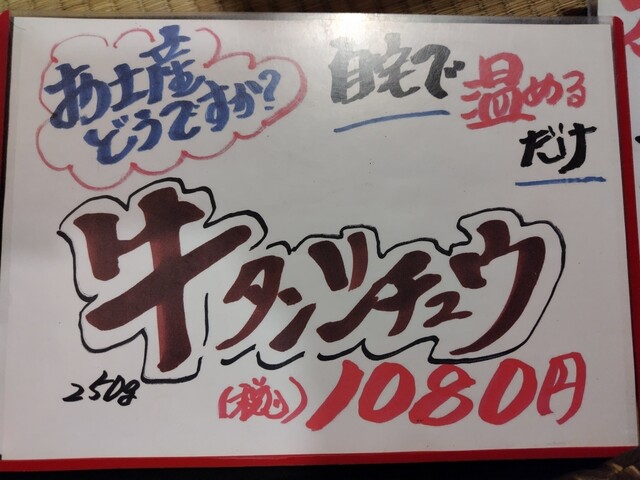 お土産
どうですか?
自宅で
温める
だけ
牛タンシチュウ
250g
(税込)1080円